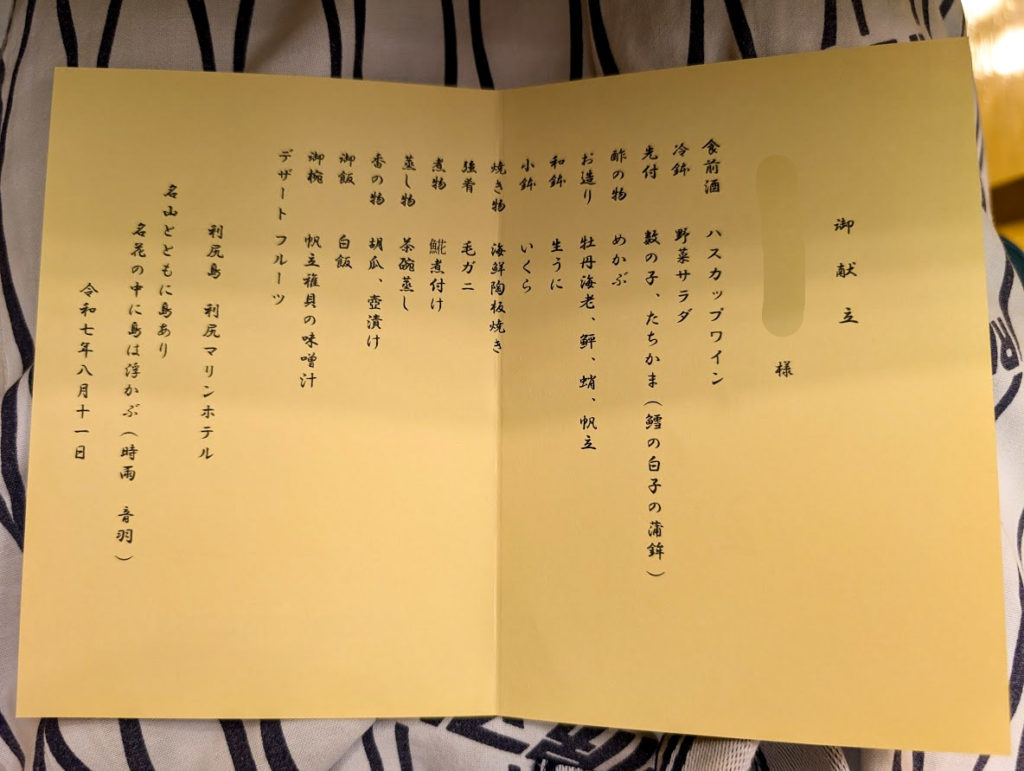 御献立
様
食前酒 ハスカップワイン
冷鉢 野菜サラダ
先付 数の子、たちかま(鱈の白子の蒲鉾)
酢の物 めかぶ
お造り 牡丹海老、鮃、蛸、帆立
和鉢 生うに
小鉢 いくら
焼き物 海鮮陶板焼き
強肴 毛ガニ
煮物 鯱煮付け
蒸し物 茶碗蒸し
香の物 胡瓜、壺漬け
御飯 白飯
御椀 帆立稚貝の味噌汁
デザート フルーツ
利尻島 利尻マリンホテル
名山とともに島あり
名花の中に島は浮かぶ(時雨 音羽)
令和七年八月十一日